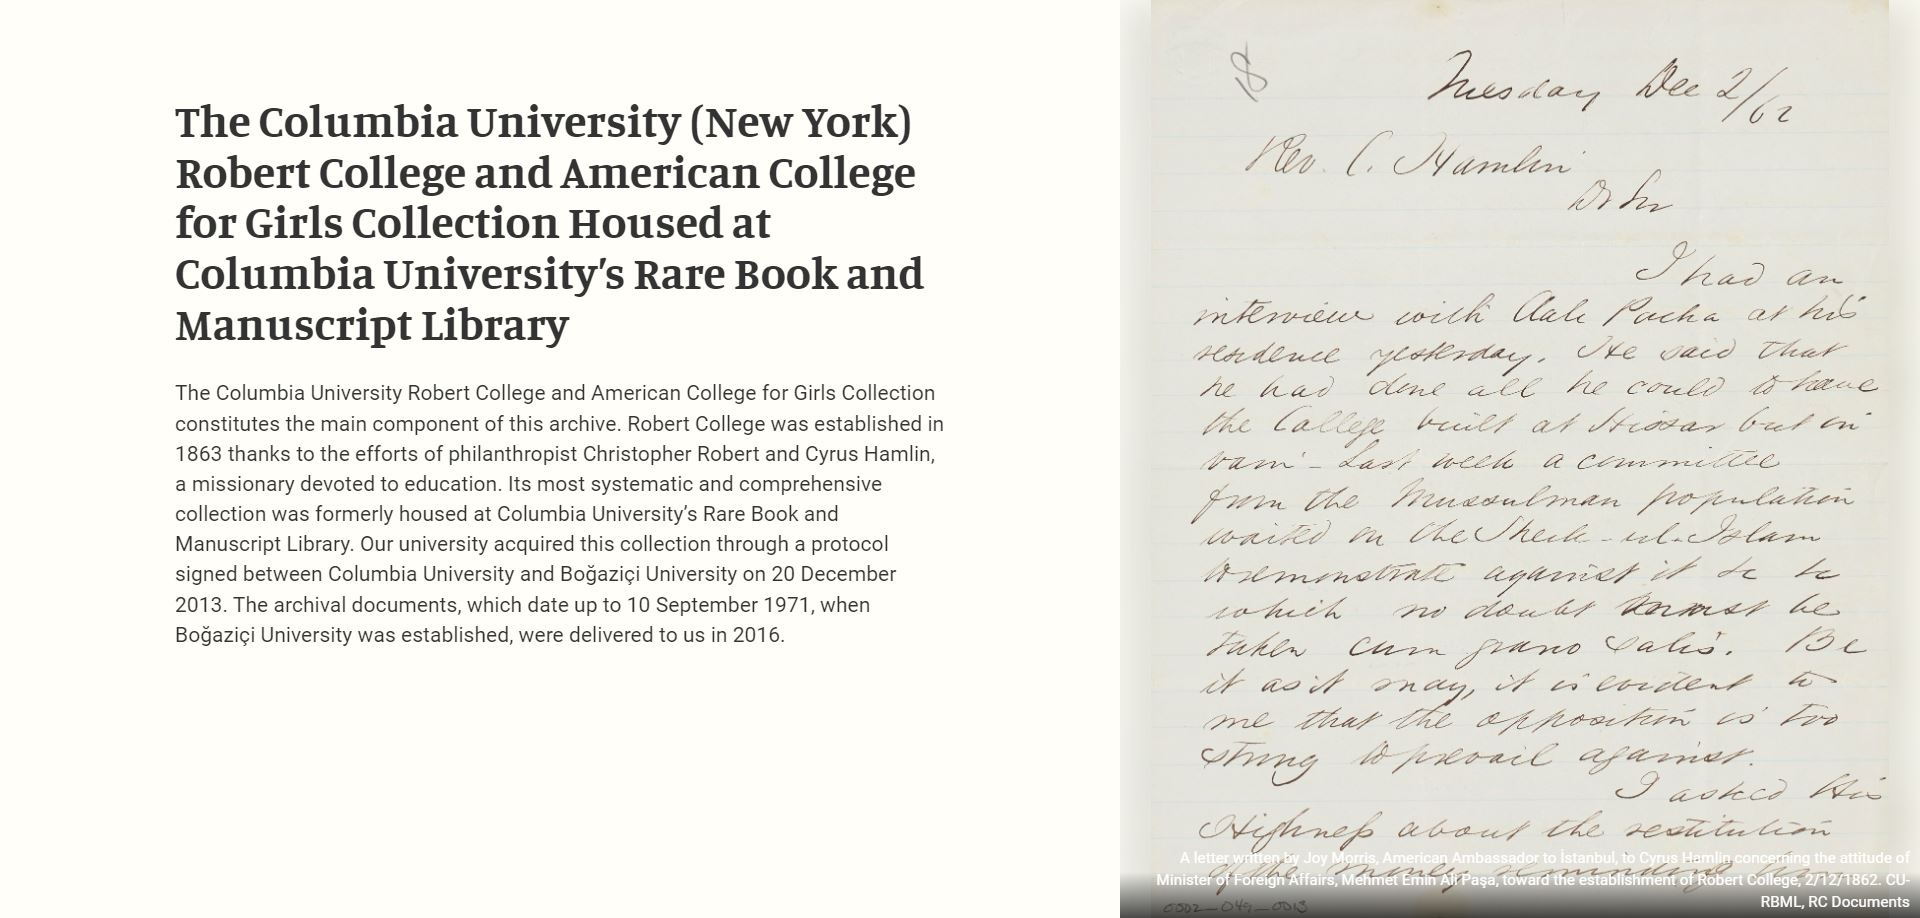 The Columbia University (New York)
Robert College and American College
for Girls Collection Housed at
Columbia University's Rare Book and
Manuscript Library
The Columbia University Robert College and American College for Girls Collection
constitutes the main component of this archive. Robert College was established in
1863 thanks to the efforts of philanthropist Christopher Robert and Cyrus Hamlin,
a missionary devoted to education. Its most systematic and comprehensive
collection was formerly housed at Columbia University's Rare Book and
Manuscript Library. Our university acquired this collection through a protocol
signed between Columbia University and Boğaziçi University on 20 December
2013. The archival documents, which date up to 10 September 1971, when
Boğaziçi University was established, were delivered to us in 2016.
18
Tuesday Dec 2/62
Rev. C. Hamlin
Dr Sir
I had an
interview with Aali Pacha at his
residence yesterday. He said that
he had done all he could to have
the College built at Hissar but in
vain - Last week a committee
from the Mussulman population
waited on the Sheik-ul-Islam
to remonstrate against it &c &c
which no doubt must be
taken cum grano salis. Be
it as it may, it is evident to
me that the opposition is too
strong to prevail against.
I asked His
Highness about the restitution
of the money reminding him
A letter written by Joy Morris, American Ambassador to İstanbul, to Cyrus Hamlin concerning the attitude of
Minister of Foreign Affairs, Mehmet Emin Ali Paşa, toward the establishment of Robert College, 2/12/1862. CU-
RBML, RC Documents
0502_049_0013